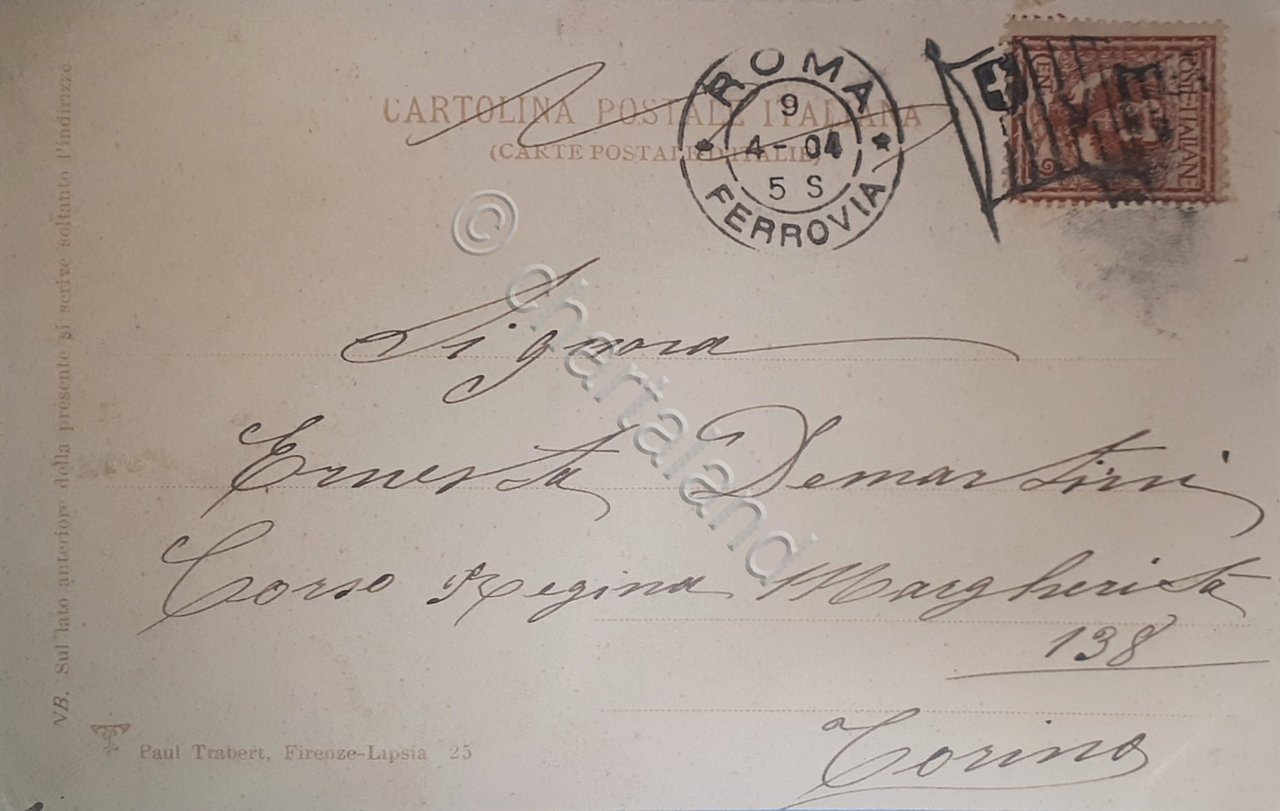 CARTOLINA POSTALE ITALIANA
(CARTE POSTALE D'ITALIE)
ROMA
9
4-04
5 S
FERROVIA
POSTE ITALIANE
NB. Sul lato anteriore della presente si scrive soltanto l'indirizzo
© chartaland
Signora
Ernesta Demartini
Corso Regina Margherita
138
Torino
Paul Trabert, Firenze-Lipsia 25